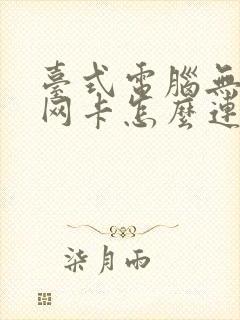 臺式電腦無
网卡怎麼連
柒月雨